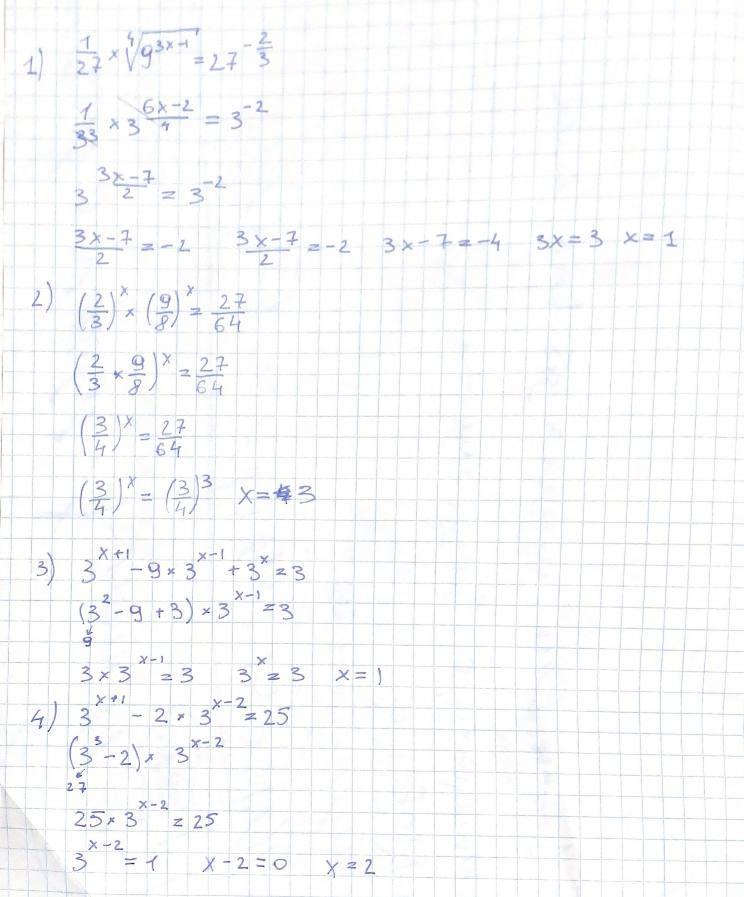 1) 1/27 × ⁴√(9^(3x-1)) = 27^(-2/3)
1/3³ × 3^((6x-2)/4) = 3^(-2)
3^((3x-7)/2) = 3^(-2)
(3x-7)/2 = -2 (3x-7)/2 = -2 3x-7 = -4 3x = 3 x = 1
2) (2/3)^x × (9/8)^x = 27/64
(2/3 × 9/8)^x = 27/64
(3/4)^x = 27/64
(3/4)^x = (3/4)^3 x = 3
3) 3^(x+1) - 9 × 3^(x-1) + 3^x = 3
(3^2 - 9 + 3) × 3^(x-1) = 3
9
3 × 3^(x-1) = 3 3^x = 3 x = 1
4) 3^(x+1) - 2 × 3^(x-2) = 25
(3^3 - 2) × 3^(x-2)
27
25 × 3^(x-2) = 25
3^(x-2) = 1 x - 2 = 0 x = 2